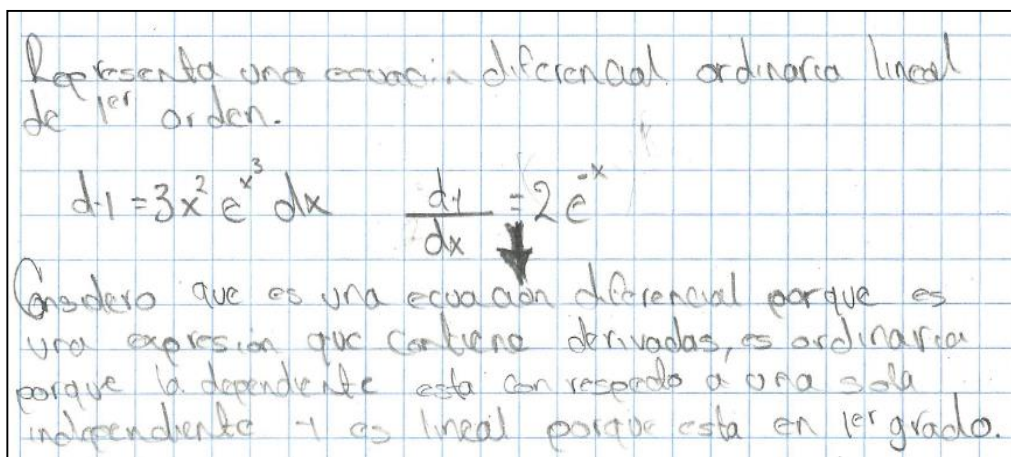 Representa una ecuación diferencial ordinaria lineal
de 1er orden.
dy = 3x² e^x³ dx    dy/dx = 2e^-x
Considero que es una ecuación diferencial porque es
una expresión que contiene derivadas, es ordinaria
porque la dependiente esta con respecto a una sola
independiente y es lineal porque esta en 1er grado.